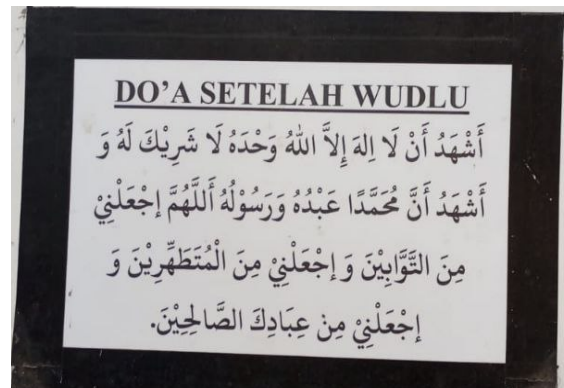 DO'A SETELAH WUDLU
أَشْهَدُ أَنْ لَا اِلهَ إِلاَّ اللهُ وَحْدَهُ لَا شَرِيْكَ لَهُ وَ
أَشْهَدُ أَنَّ مُحَمَّدًا عَبْدُهُ وَرَسُوْلُهُ أَللَّهُمَّ إجْعَلْنِيْ
مِنَ التَّوَّابِيْنَ وَ إجْعَلْنِيْ مِنَ الْمُتَطَهِّرِيْنَ وَ
إجْعَلْنِيْ مِنْ عِبَادِكَ الصَّالِحِيْنَ.